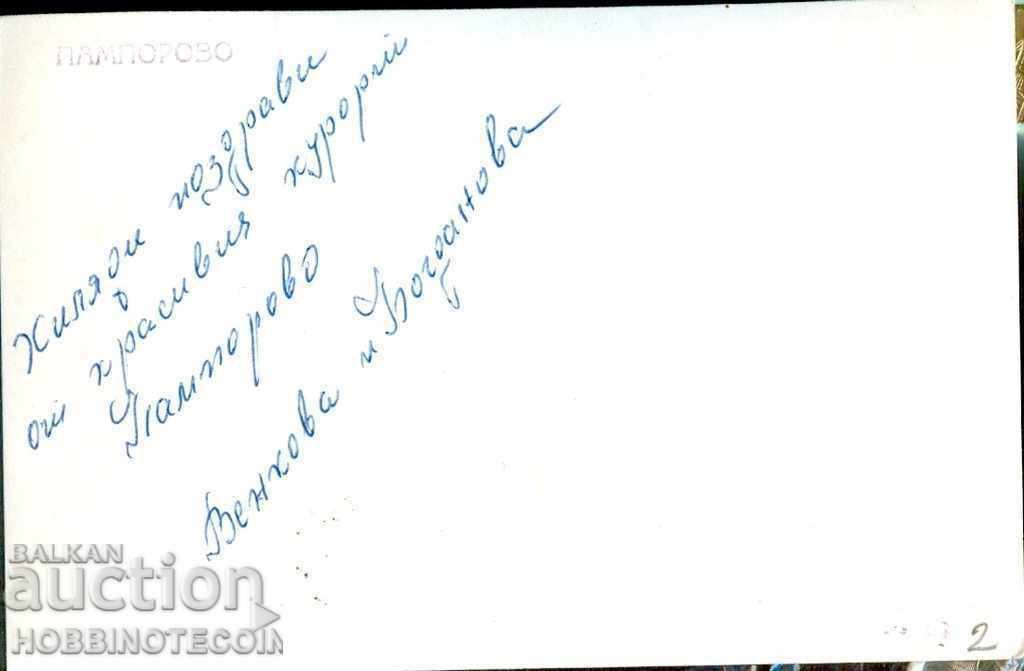 ПАМПОРОВО
Хиляди поздрави
от красивия курорт
Пампорово
Венкова и Богданова
BALKAN
auction
HOBBINOTECOIN
2